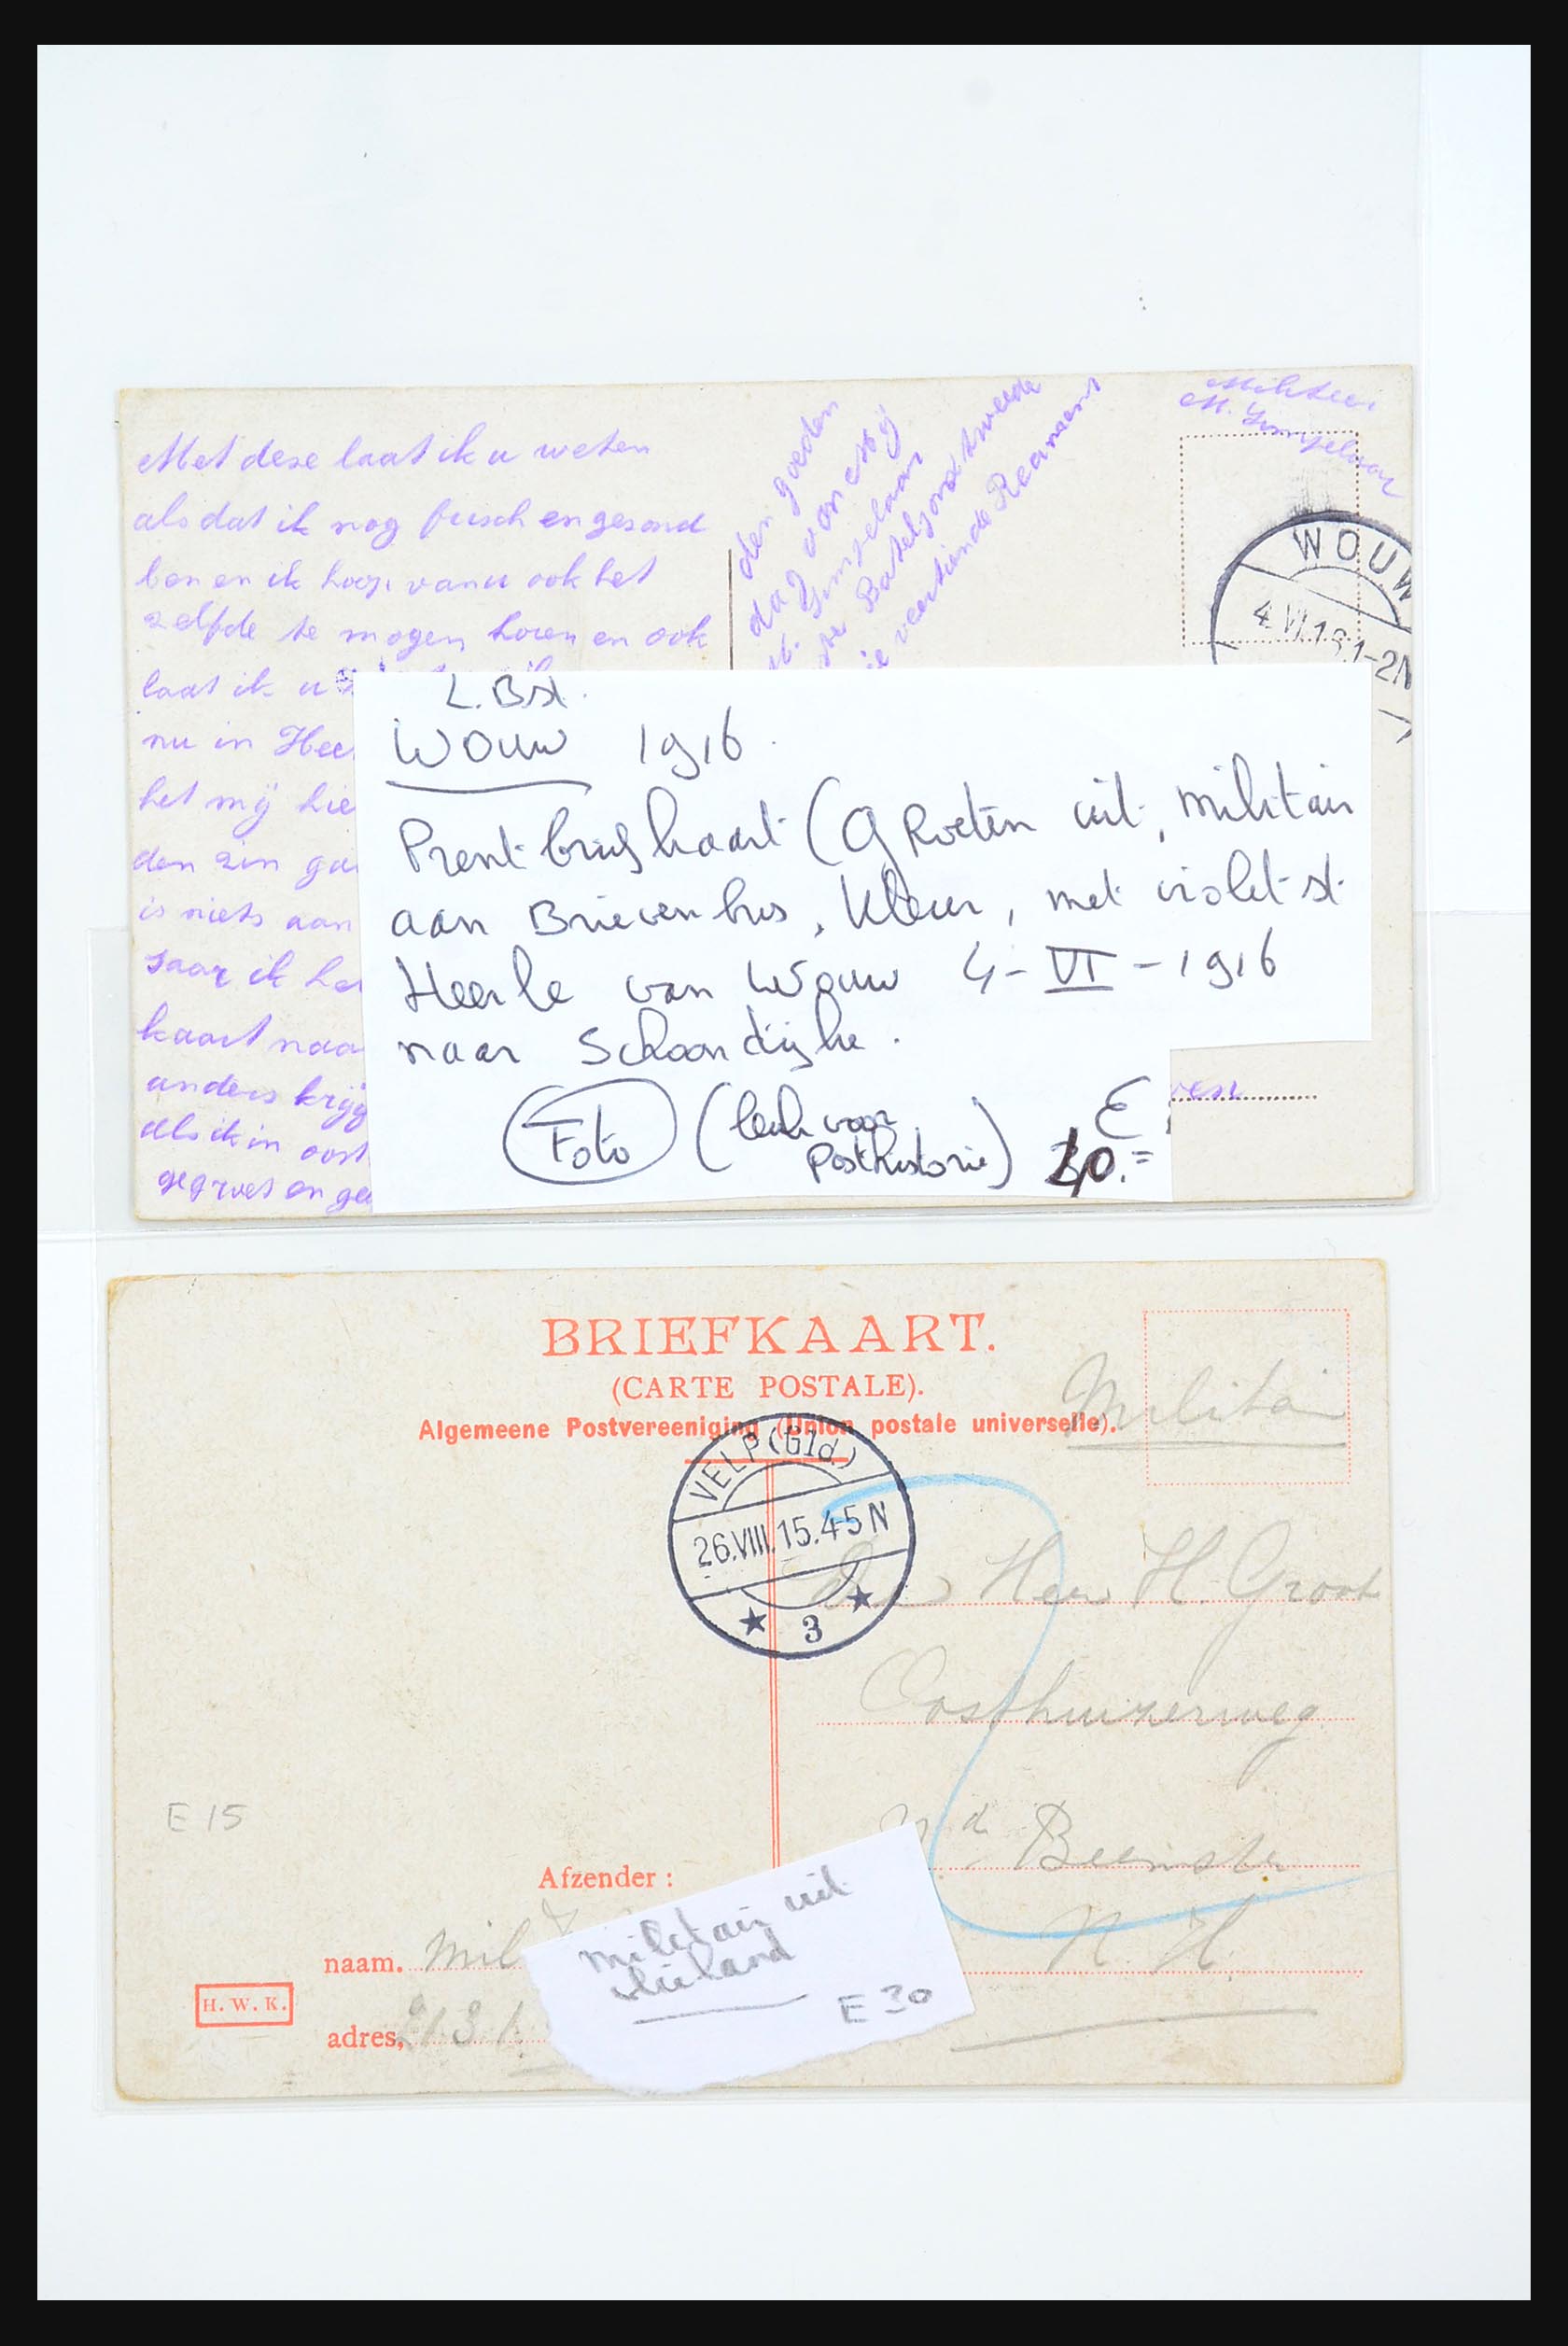 Met dese laat ik u weten
als dat ik nog frisch en gesond
ben en ik hoop van u ook het
zelfde te mogen horen en ook
laat ik u
nu in Heer
het mij hie
den zin ga
is niets aan
kaart naa
anders krijg
als ik in oost
gegroet en ge
den goeden
dag van mij
veertiende
Militair
M.
WOUW
4.VI.16.1-2N
ven
L.Bst.
Wouw 1916.
Prentbriefkaart (Groeten uit, militair
aan Brievenbus, kleur, met violet st.
Heerle van Wouw 4-VI-1916
naar Schoondijke.
Foto (leuk voor
Posthistorie) E
BRIEFKAART.
(CARTE POSTALE).
Algemeene Postvereeniging (Union postale universelle).
Militair
VELP (Gld.)
26.VIII.15.4-5N
3
den Heer H. Groot
Oosthuizerweg
Beemster
N. H.
E 15
Afzender :
naam. Mil
H. W. K.
adres,
militair uit
vlieland
E 30